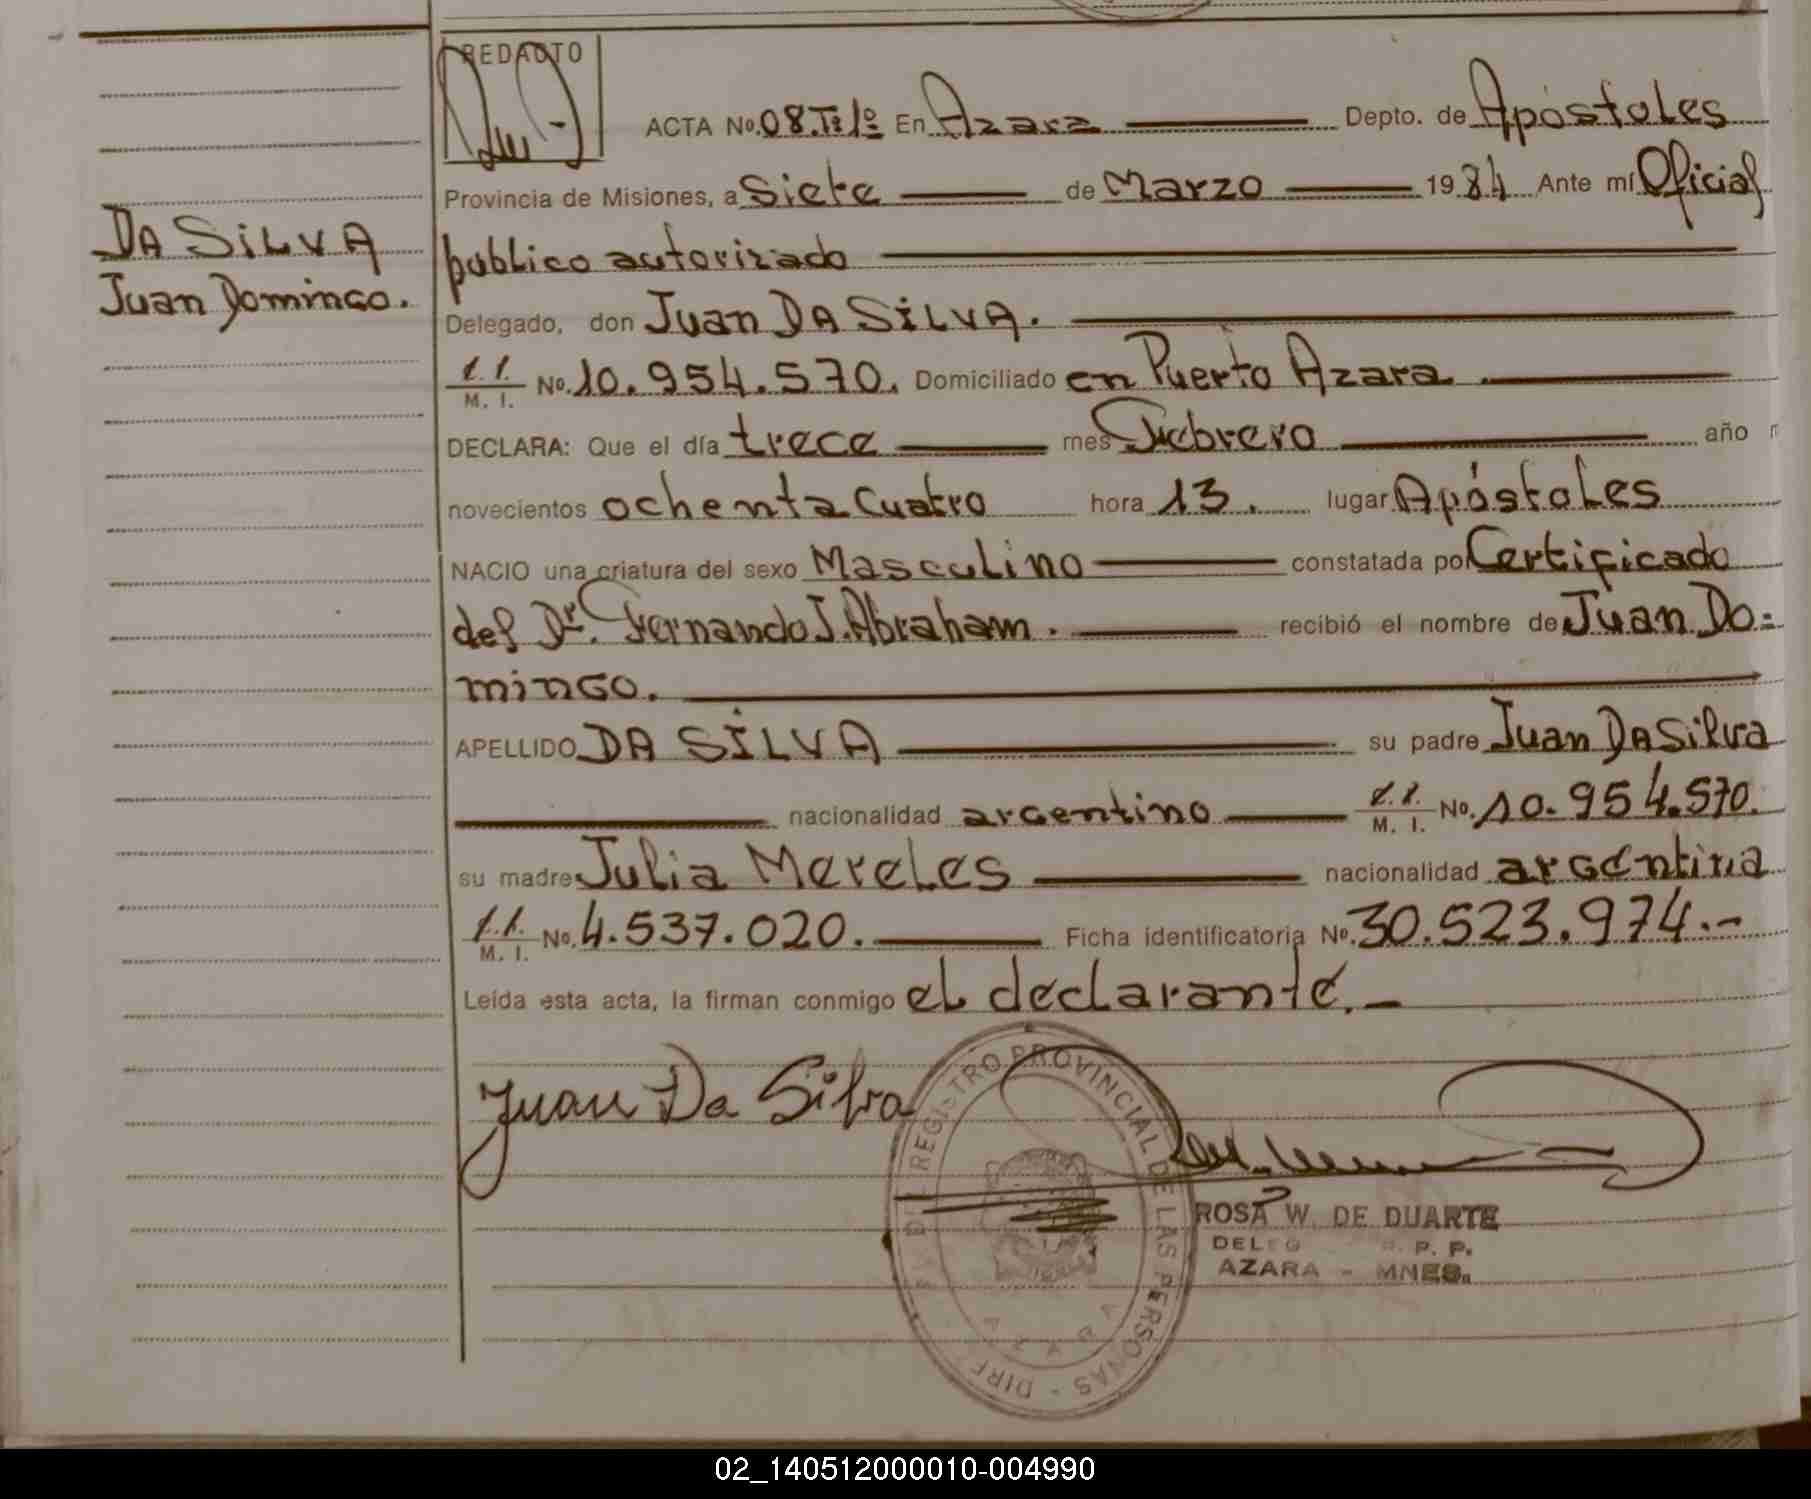 REDACTO
ACTA No. 08.Tº1º En Azara Depto. de Apóstoles
Provincia de Misiones, a Siete de Marzo 1984 Ante mí Oficial
publico autorizado
DA SiLVA
Juan Domingo.
Delegado, don Juan DA SiLVA.
M. I. No. 10.954.570. Domiciliado en Puerto Azara.
DECLARA: Que el día trece mes Febrero año
novecientos ochenta Cuatro hora 13. lugar Apóstoles
NACIO una criatura del sexo Masculino constatada por Certificado
del Dr. Fernando J. Abraham. recibió el nombre de Juan Do=
mingo.
APELLIDO DA SiLVA su padre Juan Da Silva
nacionalidad argentino M. I. No. 10.954.570.
su madre Julia Mereles nacionalidad argentina
M. I. No. 4.537.020. Ficha identificatoria No. 30.523.974.-
Leída esta acta, la firman conmigo el declarante.-
Juan Da Silva
REGISTRO PROVINCIAL DE LAS PERSONAS - DIRE
AZARA
ROSA W. DE DUARTE
P. P.
AZARA - MNES.
02_140512000010-004990